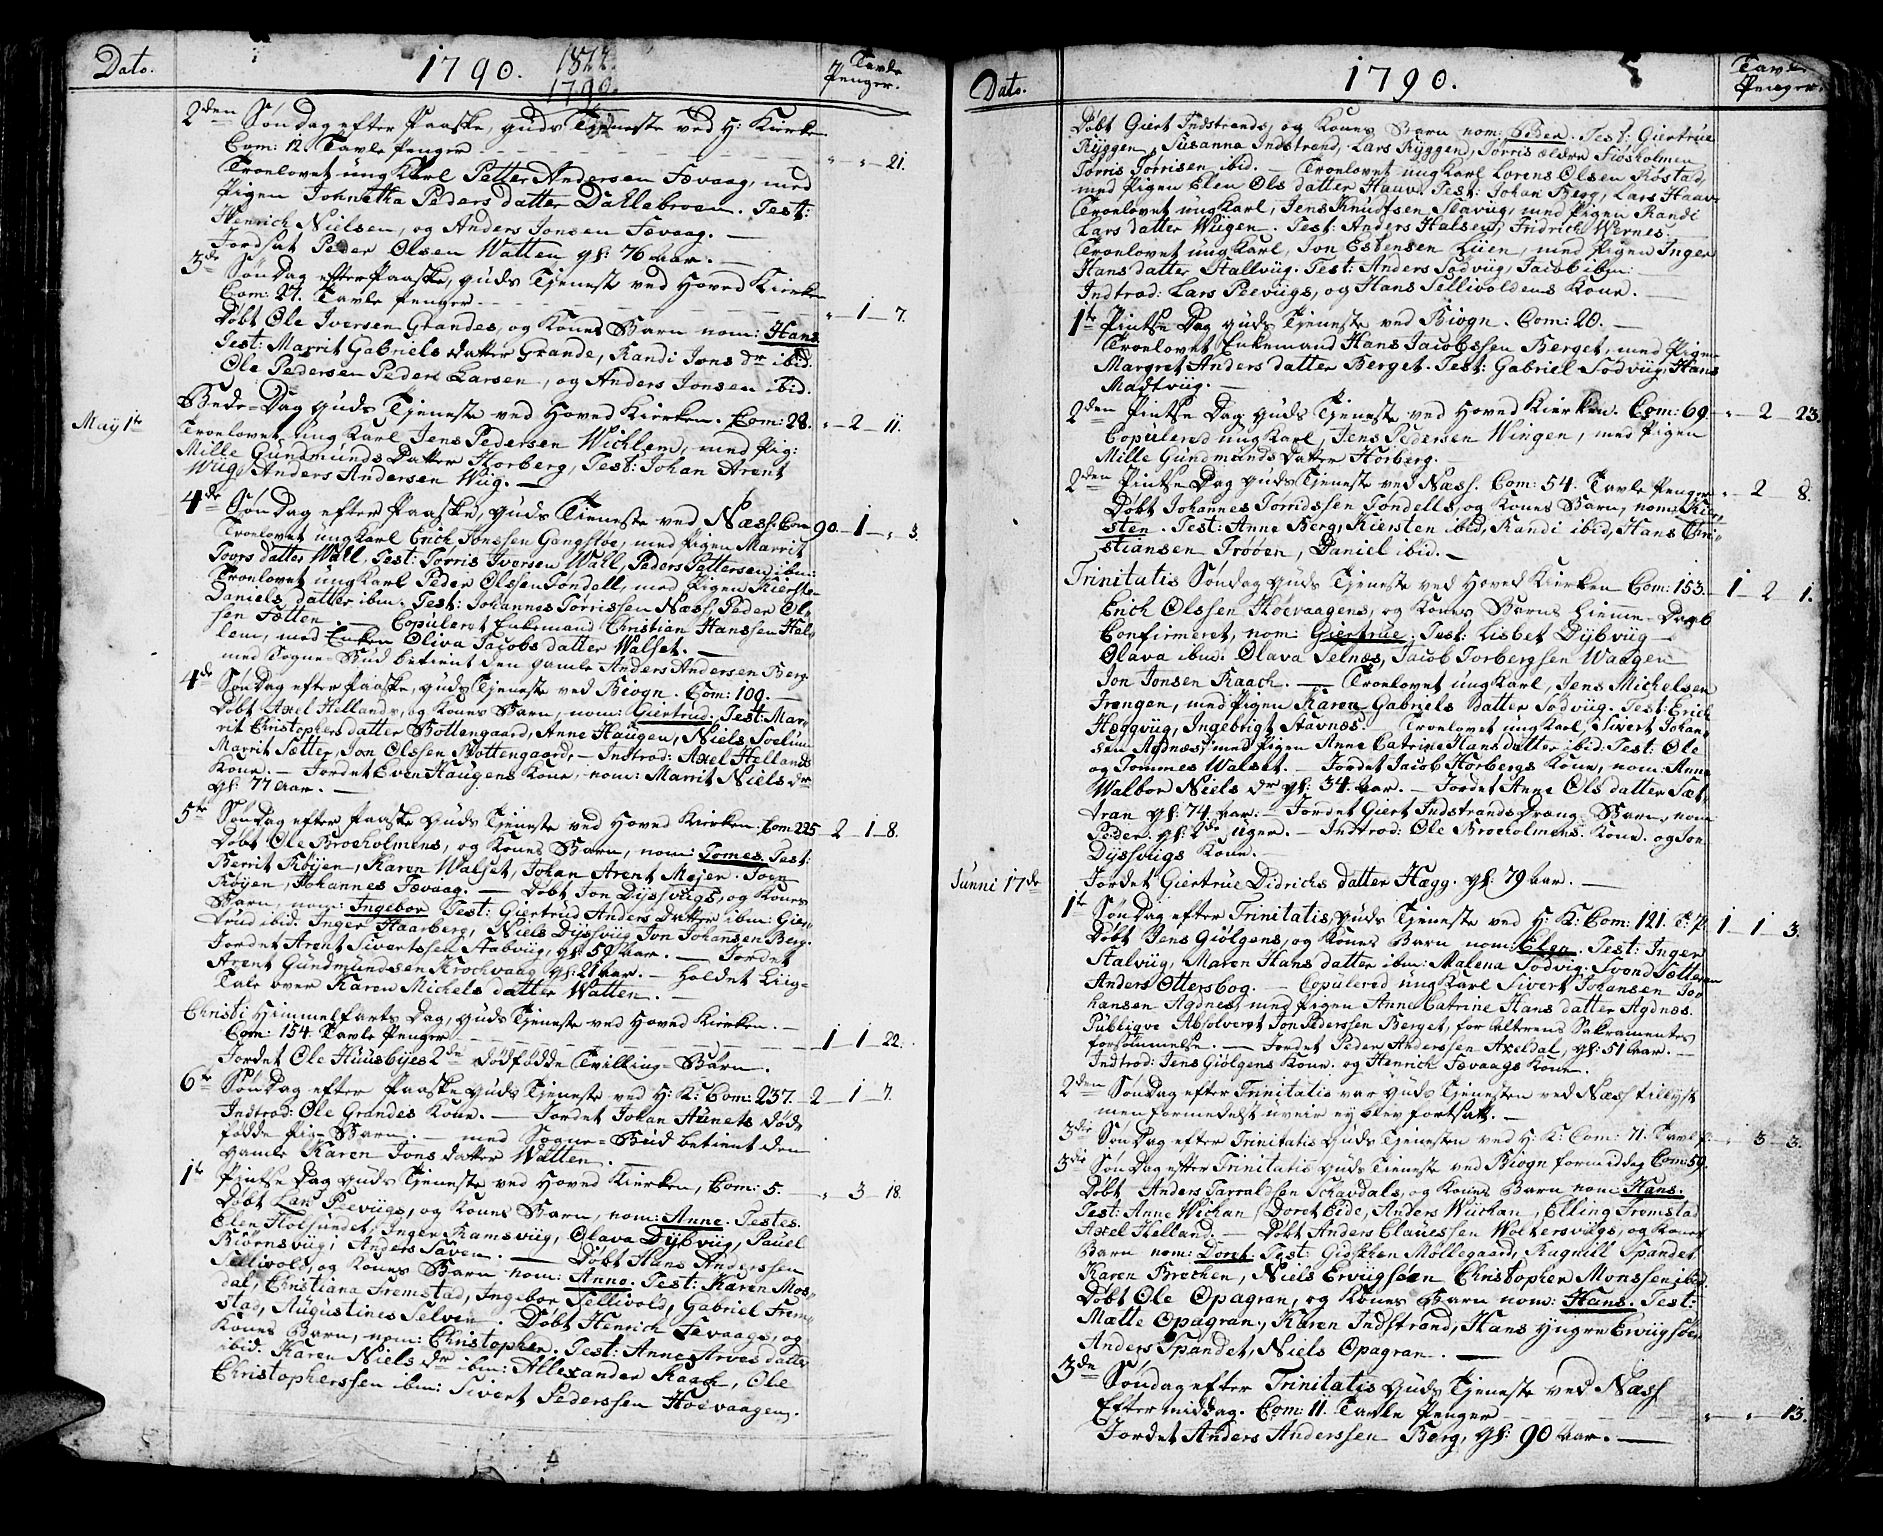 Dato. 1790. 1822 Tavle Penger.
1790
2den Søndag efter Paaske, Guds Tjeneste ved H: Kirken
Com: 12. Tavle Penger " " 21.
Troelovet ung Karl Petter Andersen Tævaag, med
Pigen Johnetha Peders datter Dahlebroen. Test:
Henrich Nielsen, og Anders Jonsen Tævaag. —
Jordsat Peder Olsen Watten gl: 76 Aar. —
3de Søndag efter Paaske, Guds Tjeneste ved Hoved Kierken
Com: 27. Tavle Penger " 1 7.
Døbt Ole Iversen Grandes, og Kones Barn nom: Hans.
Test: Marrit Gabriels datter Grande, Randi Jons dr ibid.
Ole Pedersen Peder Larsen, og Anders Jonsen ibid.
May 1te Bede-Dag Guds Tjeneste ved Hoved Kierken. Com: 28. " 2 11.
Troelovet ung Karl Jens Pedersen Wichlem, med Pig:
Mille Gundmunds Datter Horberg, Test: Johan Arent
Wiig, Anders Andersen Wiig. —
4de Søndag efter Paaske, Guds Tieneste ved Næss. Com 90 — 1 — " 3.
Troelovet ung Karl Erich Jonssen Gangsløe, med Pigen Marrit
Toors datter Wall, Test: Tørris Iversen Wall, Peders Pettersen ibm:
Troelovet ung Karl Peder Olssen Tøndell, med Pigen Kierste
Daniels datter ibm. Test: Johannes Tørrissen Næss, Peder Ol-
sen Sætten. — Copuleret Enkemand Christian Hanssen Hal-
lem, med Enken Oliva Jacobs datter Walset. —
med Sogne-Bud betient den gamle Anders Andersen Berg
4de Søndag efter Paaske, Guds Tjeneste ved Biogn. Com: 100. —
Døbt Axel Hellands, og Kones Barn, nom: Giertrud. Test: Mar-
rit Christophers datter Bottengaard, Anne Haugen, Niels Soelun
Marrit Sætter, Jon Olssen Bottengaard, — Introd: Axel Hellands
Kone. — Jordet Even Haugens Kone, nom: Marrit Niels dr
gl: 77 Aar. —
5te Søndag efter Paaske Guds Tjeneste ved Hoved Kierken. Com 225 2 — 1 — 8.
Døbt Ole Broeholmens, og Kones Barn, nom: Tomes. Test:
Berrit Røyen, Karen Walset, Johan Arent Mejer. Joen
Røyen, Johannes Tævaag. — Døbt Jon Dÿssviigs, og Kones
Barn, nom: Ingebor Test: Giertrud Anders Datter ibm: Gier-
trud ibid: Inger Haarberg, Niels Dÿssviig Jon Johansen Berg.
Jordet Arent Sivertssen Aabviig, gl: 59 Aar. — Jordet
Arent Gundmundsen Krochvaag gl: 21 Aar. — Holdet Liig-
Tale over Karen Michels datter Watten. —
Christi Himmelfarts Dag, Guds Tjeneste ved Hoved Kierken. —
Com: 154. Tavle Penger 1 1 22.
Jordet Ole Huusbÿes 2de dødfødde Tvilling-Børn.
6te Søndag efter Paaske Guds Tjeneste ved H: K: Com: 237. — 2 — 1 — 7.
Introd: Ole Grandes Kone. — Jordet Johan Hünets død-
fødde Pige-Barn. — med Sogne-Bud betient den
gamle Karen Jons datter Watten.
1te Pintse Dag Guds Tjeneste ved Hoved Kierken, Com: 5. " 3 — 18.
Døbt Lars Peeviigs, og Kones Barn, nom: Anne. Testes.
Elen Holsundet, Inger Ramsviig, Olava Dÿbviig, Pauel
Biørnsviig, Anders Saven. — Døbt Hans Anderssen
Sellivold, og Kones Barn nom: Anne. Test: Karen Mos-
dal, Christiana Fremstad, Ingebor Sellivold, Gabriel Frem-
stad, Augustines Selven. Døbt Henrich Tævaags, og
Kones Barn, nom: Christopher. Test: Anne Arves datter
ibid. Karen Niels dr ibm: Allexander Raach, Ole
Christopherssen ibm: Sivert Pederssen Hoevaagen.
Dato. 1790. Tavle Penger.
Døbt Giert Indstrands, og Kones Barn nom: Peder. Test: Giertrue
Rÿggen, Susanna Indstrand, Lars Rÿggen, Tørris ældre Fiosholmen
Tørris Tørrisen ibid. — Troelovet ung Karl Lorens Olsen Røstad,
med Pigen Elen Ols datter Haav. Test: Johan Berg, Lars Haav
Troelovet ung Karl, Jens Knudtsen Slaviig, med Pigen Randi
Lars datter Wiigen. Test: Anders Halsen, Fridrich Wernes.
Troelovet ung Karl, Jon Esbensen Lüen, med Pigen Inger
Hans datter Stallviig. Test: Anders Sødviig, Jacob ibm: —
Introd: Lars Peeviigs, og Hans Sellivoldens Kone. —
1te Pintse Dag Guds Tjeneste ved Biogn. Com: 20. —
Troelovet Enkemand Hans Jacobssen Berget, med Pigen
Margret Anders datter Berget. Test: Gabriel Sødviig, Hans
Madtviig. —
2den Pintse Dag Guds Tjeneste ved Hoved Kierken. Com: 69 — " — 2 — 23.
Copulered ung Karl, Jens Pedersen Wingen, med Pigen
Mille Gundmunds Datter Horberg. —
2den Pintse Dag Guds Tjeneste ved Næss. Com: 54. Tavle Penger " 2 — 8.
Døbt Johannes Tomdssens Tøndells, og Kones Barn, nom: Kier-
sten. Test: Anne Berg, Kiersten ibid, Randi ibid, Hans Chri-
stiansen Trøöen, Daniel ibid. —
Trinitatis Søndag Guds Tjeneste ved Hoved Kierken Com: 153. — 1 — 2 — 1.
Erich Olssen Høevaagens, og Kones Barns Hieme-Daab
Confirmeret, nom: Giertrue. Test: Lisbet Dÿbviig —
Olava ibm: Olava Selnæs, Jacob Torbergsen Waagen
Jon Jonsen Raach. — Troelovet ung Karl, Jens Michelsen
Frengen, med Pigen Karen Gabriels datter Sødviig. Test: Erich
Heggviig, Ingebrigt Stavnæs. — Troelovet ung Karl, Sivert Johan-
sen Agdnæs, med Pigen Anne Catrine Hans datter ibid: Test: Ole
og Tommes Walset. — Jordet Jacob Horbergs Kone, nom: Anne
Walbor Niels dr gl: 34. Aar. — Jordet Anne Ols datter Sæt-
tran gl: 74. Aar. — Jordet Giert Indstrands Dreng Barn, nom
Peder. gl: 2de Uger. — Introd: Ole Broeholmens Kone. og Jon
Dÿssviigs Kone. —
Junni 17de Jordet Giertrue Didrichs datter Hægg. gl: 79 Aar. —
1te Søndag efter Trinitatis, Guds Tjeneste ved H: K: Com: 121. T: P: 1 — 1 — 3.
Døbt Jens Giölgens, og Kones Barn nom: Elen. Test: Inger
Stalviig, Maren Hans datter ibm: Malena Sodvig. Svond Sætteran
Anders Ottersbog. — Copulered ung Karl Sivert Johansen Jo-
hansen Agdnes, med Pigen Anne Catrine Hans datter Agdnæs.
Publiqve Absolvert Jon Pederssen Berget, for Alterens Sakramentes
forsømmelse. — Jordet Peder Anderssen Axeldal, gl: 51 Aar. —
Introd: Jens Giölgens Kone. og Henrich Tævaags Kone.
2den Søndag efter Trinitatis var Guds Tjenesten ved Næss tillÿst
men formedelst uveir eÿ blev fortsatt. —
3die Søndag efter Trinitatis Guds Tjenesten ved H: K: Com: 71. Tavl P: " 3 — 3.
3die Søndag efter Trinitatis Guds Tieneste ved Biogn formiddag Com: 59.
Døbt Anders Tarraldsen Schavdals, og Kones Barn nom: Hans.
Test: Anne Wichan, Doret Eide, Anders Wichan, Elling Fremstad
Axel Helland. — Døbt Anders Clauessen Woltersviigs, og Kones
Barn nom: Doret. Test: Gidsken Møllegaard, Rugnill Spandet
Karen Brechen, Niels Erviigsøen Christopher Monssen ibid
Døbt Ole Opagran, og Kones Barn nom: Hans. Test:
Mætte Opagran, Karen Indstrand, Hans ÿngre Erviigsøen
Anders Spandet, Niels Opagran. —
3de Søndag efter Trinitatis Guds Tjeneste ved Næss
Eftermiddag. Com: 11. Tavle Penger " " 13.
Jordet Anders Anderssen Berg, gl: 90 Aar. —